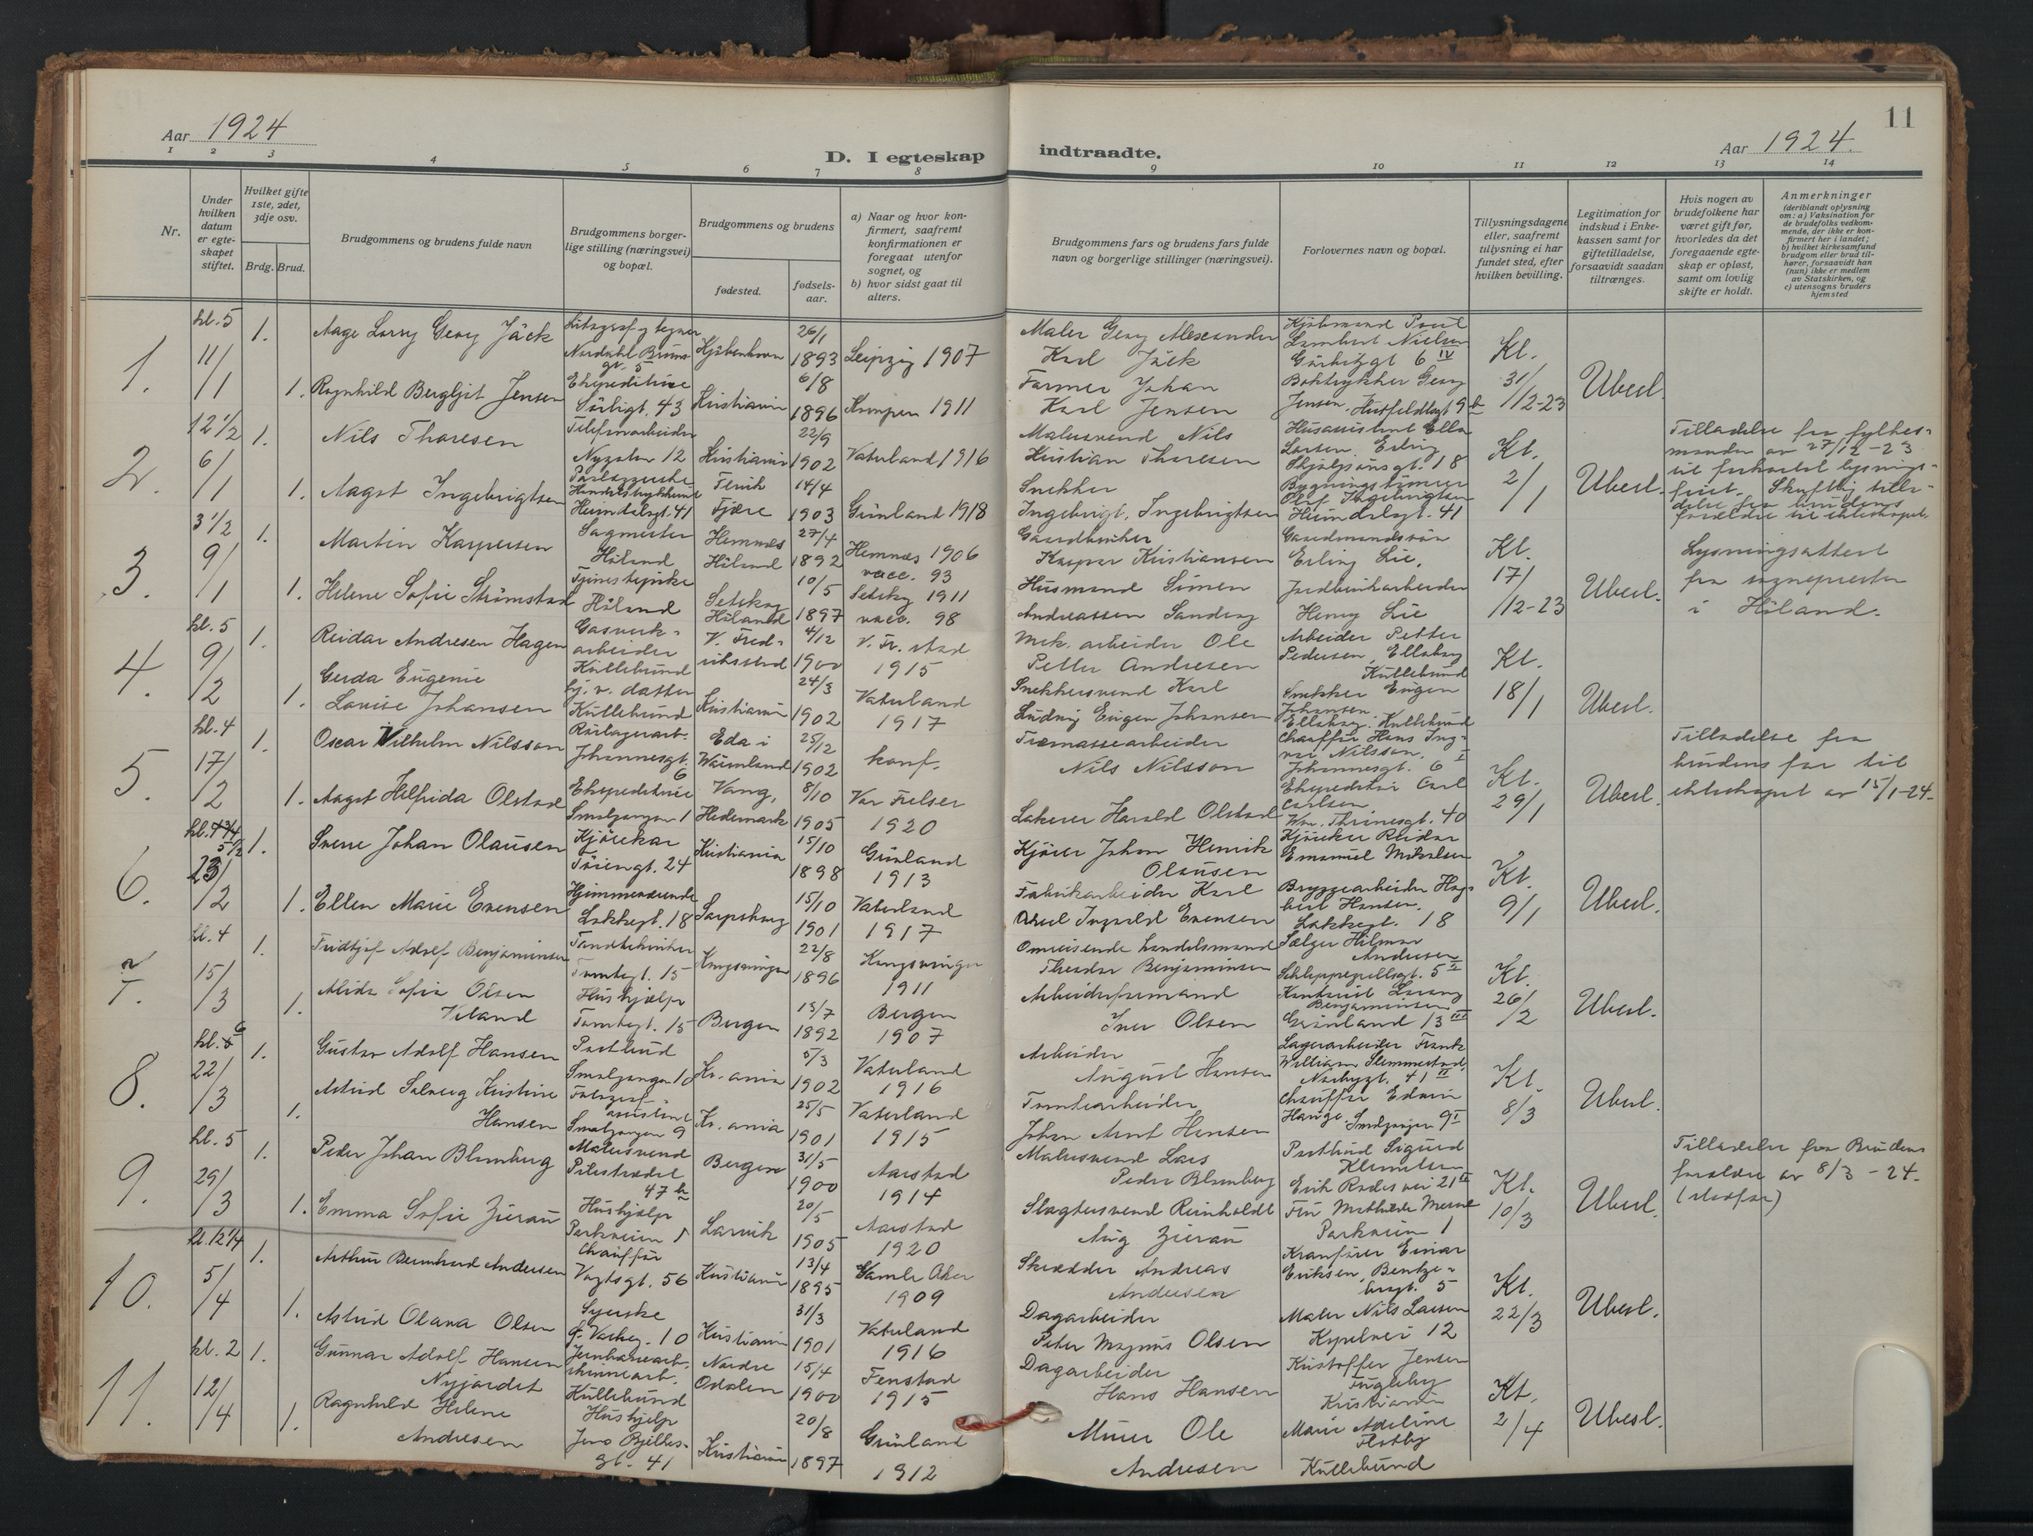 Aar 1924
D. I egteskap
indtraadte.
Aar 1924.
11
1 2 3 4 5 6 7 8 9 10 11 12 13 14
Nr.
Under hvilken datum er egteskapet stiftet.
Hvilket gifte 1ste, 2det, 3dje osv.
Brdg. Brud.
Brudgommens og brudens fulde navn
Brudgommens borgerlige stilling (næringsvei) og bopæl.
Brudgommens og brudens
fødested.
fødselsaar.
a) Naar og hvor konfirmert, saafremt konfirmationen er foregaat utenfor sognet, og
b) hvor sidst gaat til alters.
Brudgommens fars og brudens fars fulde navn og borgerlige stillinger (næringsvei).
Forlovernes navn og bopæl.
Tillysningsdagene eller, saafremt tillysning ei har fundet sted, efter hvilken bevilling.
Legitimation for indskud i Enkekassen samt for giftetilladelse, forsaavidt saadan tiltrænges.
Hvis nogen av brudefolkene har været gift før, hvorledes da det foregaaende egteskap er opløst, samt om lovlig skifte er holdt.
Anmerkninger
(deriblandt oplysning om: a) Vaksination for de brudefolks vedkommende, der ikke er konfirmert her i landet; b) hvilket kirkesamfund brudgom eller brud tilhører, forsaavidt han (hun) ikke er medlem av Statskirken, og c) utensogns bruders hjemsted
1. kl. 5 11/1
1. Aage Lorry Georg Jäck Nordahl Brunsgt. 5 Kjøbenhavn 26/1 1893 Leipzig 1907 Maler Georg Alexander Karl Jäck Kjøbmand Poul Lambert Nielsen 6 IV Kl. 31/12-23 Ubesl.
1. Ragnhild Bergljot Jensen Ekspeditrice Sørligt. 43 Kristiania 6/8 1896 Kampen 1911 Farmer Johan Karl Jensen Boktrykker Georg Jensen, Huitfeldtsgt 9 b
2. 12 1/2 6/1
1. Nils Thoresen Telefonarbeider Nygaten 12 Kristiania 22/9 1902 Vaterland 1916 Malersvend Nils Kristian Thoresen Husassistent Ella Larsen, Erling Skjalgsønsgt. 18 Kl. 2/1 Ubesl. Tilladelse fra fylkesmanden av 27/12-23 til forkortet lysningsfrist. Skriftlig tilladelse fra brudens forældre til ekteskapet.
1. Aagot Ingebrigtsen Heimdalsgt. 41 Fjære 14/4 1903 Grønland 1918 Snekker Ingebrigt Ingebrigtsen Bygningstømrer Olaf Ingebrigtsen Heimdalsgt. 41
3. 3 1/2 9/1
1. Martin Kaspersen Sagmester Høland Hemnæs Høland 27/4 1892 Hemnæs 1906 vacc. 93 Gaardbruker Kaspar Kristiansen Gaardmandssøn Erling Lie, Kl. 17/12-23 Ubesl. Lysningsattest fra sognepresten i Høland.
1. Helene Sofie Strømstad Tjenestepike Høland Setskog Høland 10/5 1897 Setskog 1911 vacc. 98 Husmand Simen Andreassen Sandsag Jordbrukarbeider Henry Lie
4. kl. 5 9/2
1. Reidar Andresen Hagen Gasverkarbeider Kullebund V. Fredriksstad 4/12 1900 V. Fr.stad 1915 Mek. arbeider Ole Petter Andresen Arbeider Petter Pedersen, Kullebund Kl. 18/1 Ubesl.
1. Gerda Eugenie Lovise Johansen hj. v. datter Kullebund Kristiania 24/3 1902 Vaterland 1917 Snekkersvend Karl Ludvig Eugen Johansen Snekker Eugen Johansen Kullebund
5. kl. 4 17/2
1. Oscar Vilhelm Nilsson Johannesgt. 6 Eda i Wärmland 25/12 1902 konf. Træmassearbeider Nils Nilsson Chauffør Hans Ingvar Nilsson, Johannesgt. 6 I Kl. 29/1 Ubesl. Tilladelse fra brudens far til ekteskapet av 15/1-24.
1. Aagot Helfrida Olstad Ekspeditrice Smalgangen 1 Vang, Hedemark 8/10 1905 Vor Frelser 1920 Lakerer Harald Olstad Ekspeditør Carl Carlsen, 40
6. 5 1/2 23/2
1. Sverre Johan Olausen Kjørekar Tøiengt. 24 Kristiania 15/10 1898 Grønland 1913 Kjører Johan Henrik Olausen Kjører Reidar Emanuel Mikalsen Kl. 9/1 Ubesl.
1. Ellen Marie Evensen Hjemmeværende Lakkegt. 18 Sarpsborg 15/10 1901 Vaterland 1917 Fabrikarbeider Karl Aksel Ingvald Evensen Bryggearbeider Hansen, Lakkegt. 18
7. kl. 4 15/3
1. Fridtjof Adolf Benjaminsen Tandtekniker Tomtegt. 15 Kongsvinger 22/8 1896 Kongsvinger 1911 Omreisende handelsmand Theodor Benjaminsen Sælger Hilmar Andresen Schleppegrellsgt. 5 Kl. 26/2 Ubesl.
1. Alida Sofie Olsen Hushjælp Tomtegt. 15 Bergen 13/7 1892 Bergen 1907 Arbeidsformand Iver Olsen Benjaminsen Grønland 13 III
8. kl. 6 22/3
1. Gustav Adolf Hansen Postbud Smalgangen 10 Kr.ania 5/3 1902 Vaterland 1916 Arbeider August Hansen Lagerarbeider Frank William Slemmestad, 41 II Kl. 8/3 Ubesl.
1. Astrid Solveig Kristine Hansen Smalgangen 9 Kr.ania 25/5 1901 Vaterland 1915 Tomtearbeider Johan Arnt Hansen Chauffør Edwin Hauge, Smalgangen 9 I
9. kl. 5 29/3
1. Peder Johan Blomberg Malersvend Pilestrædet 47 b Bergen 31/5 1900 Aarstad 1914 Malersvend Lars Peder Blomberg Postbud Sigurd Klemetsen Erik Rødes vei 21 II Kl. 10/3 Ubesl. Tilladelse fra Brudens forældre av 8/3-24. (stedfar)
1. Emma Sofie Zierau Hushjælp Parkveien 1 Larvik 20/5 1905 Aarstad 1920 Slagtersvend Reinholdt Aug Zierau Frk Mathilde Parkveien 1
10. kl. 12 1/4 5/4
1. Arthur Bernhard Andersen Chauffør Vogtsgt. 56 Kristiania 13/4 1895 Gamle Aker 1909 Skrædder Andreas Andersen Kranfører Einar Eriksen, Bentzebrugt. 5 Kl. 22/3 Ubesl.
1. Astrid Olava Olsen Syerske 10 Kristiania 31/3 1901 Vaterland 1916 Dagarbeider Peter Magnus Olsen Maler Nils Larsen 12
11. kl. 2 12/4
1. Gunnar Adolf Hansen Nyjordet Kullebund Nordre Odalen 15/4 1900 Fenstad 1915 Dagarbeider Hans Hansen Kristoffer Jensen Fugleby Kristiania Kl. 2/4 Ubesl.
1. Ragnhild Helene Andresen Hushjelp Jens Bjelkesgt. 41 Kristiania 20/8 1897 Grønland 1912 Murer Ole Andresen Marie Adeline Flotby Kullebund